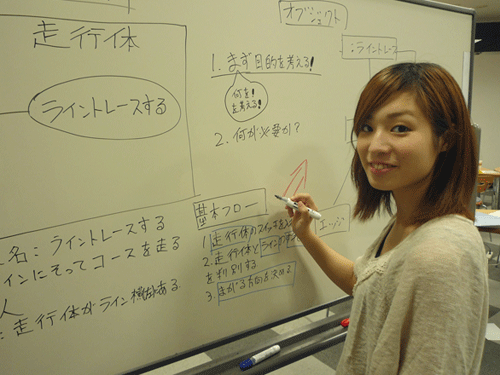 走行体
ライントレースする
名：ライントレースする
インにそってコースを走る
人
：走行体がライン
ある
オブジェクト
：ライントレース
1. まず目的を考える！
何を！
を考える！
2. 何が必要か？
基本フロー
1 走行体のスイッチを
2. 走行体と ライン
を判別する
3. まがる方向を決める
エッジ